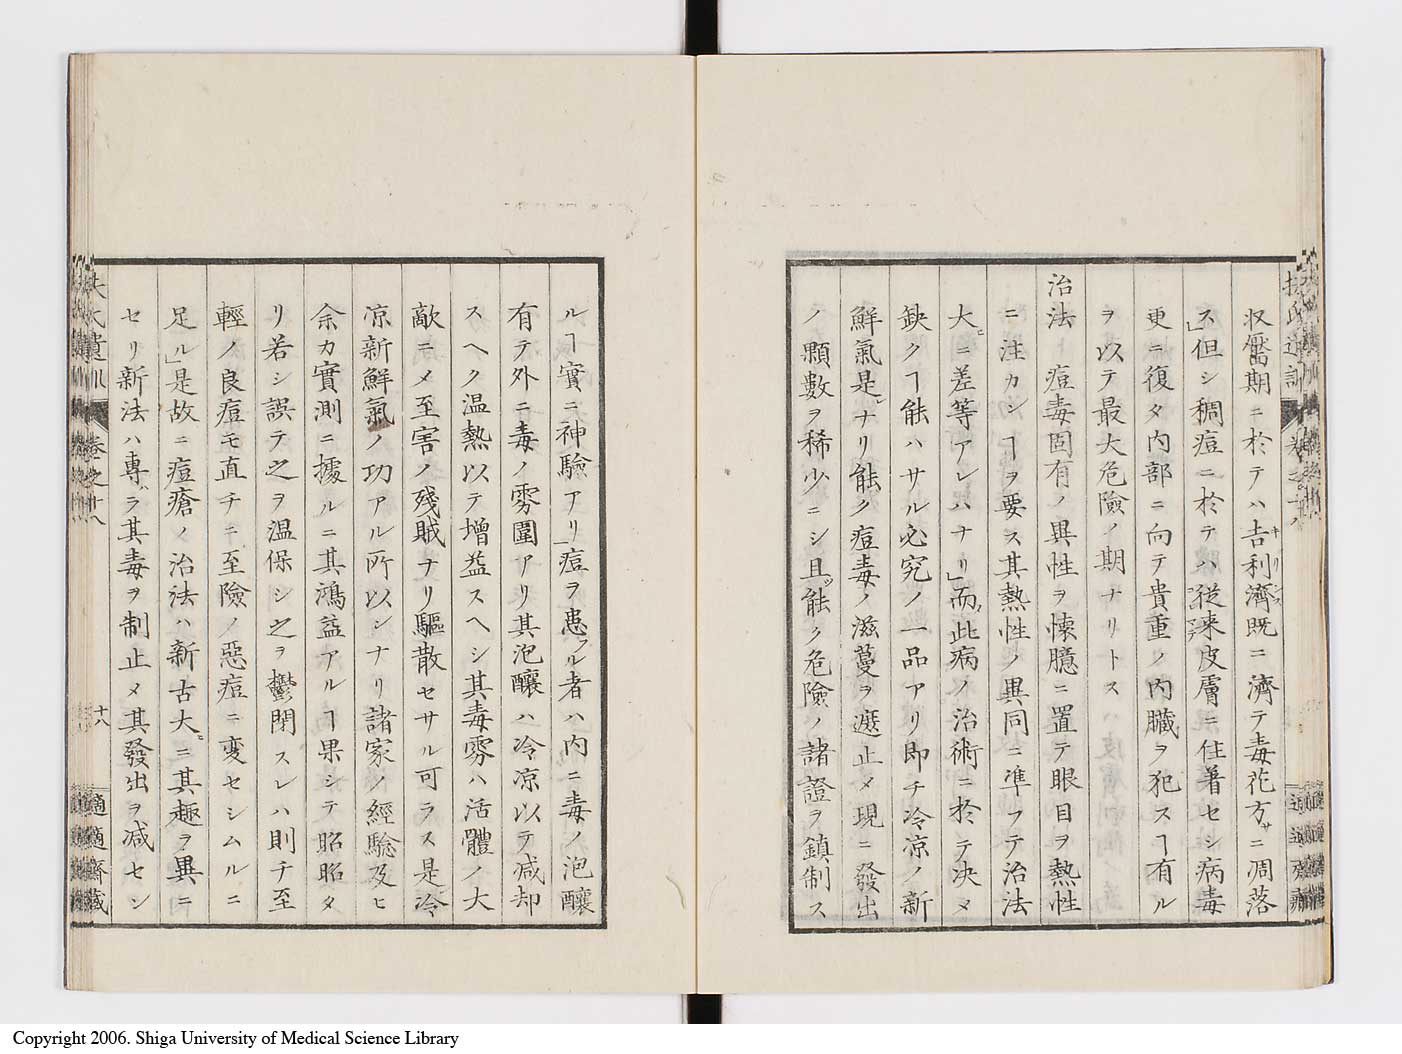 収靨期ニ於テハ𠮷利濟既ニ濟テ毒花方サニ凋落
ス」但シ稠痘ニ於テハ従来皮膚ニ住著セシ病毒
更ニ復タ内部ニ向テ貴重ノ内臓ヲ犯スヿ有ル
ヲ以テ最大危險ノ期ナリトス
治法 痘毒固有ノ異性ヲ懐臆ニ置テ眼目ヲ熱性
ニ注カンヿヲ要ス其熱性ノ異同ニ準フテ治法
大ニ差等アレハナリ」而此病ノ治術ニ於テ决メ
鈌クヿ能ハサル必究ノ一品アリ即チ冷凉ノ新
鮮氣是ナリ能ク痘毒ノ滋蔓ヲ遮止メ現ニ發出
ノ顆數ヲ稀少ニシ且能ク危險ノ諸證ヲ鎮制ス
ルヿ實ニ神驗アリ」痘ヲ患ル者ハ内ニ毒ノ泡釀
有テ外ニ毒ノ雰圍アリ其泡釀ハ冷凉以テ減却
スヘク温熱以テ增益スヘシ其毒雰ハ活體ノ大
敵ニメ至害ノ残賊ナリ驅散セサル可ラス是冷
凉新鮮氣ノ功アル所以ンナリ諸家ノ經驗及ヒ
余カ實測ニ據ルニ其鴻益アルヿ果シテ昭昭タ
リ若シ誤テ之ヲ温保シ之ヲ鬱閉スレハ則チ至
輕ノ良痘モ直チニ至險ノ惡痘ニ変セシムルニ
足ル」是故ニ痘瘡ノ治法ハ新古大ニ其趣ヲ異ニ
セリ新法ハ專ラ其毒ヲ制止メ其發出ヲ減セン
扶氏遺訓 卷之十八
十八
適適齋藏
Copyright 2006. Shiga University of Medical Science Library